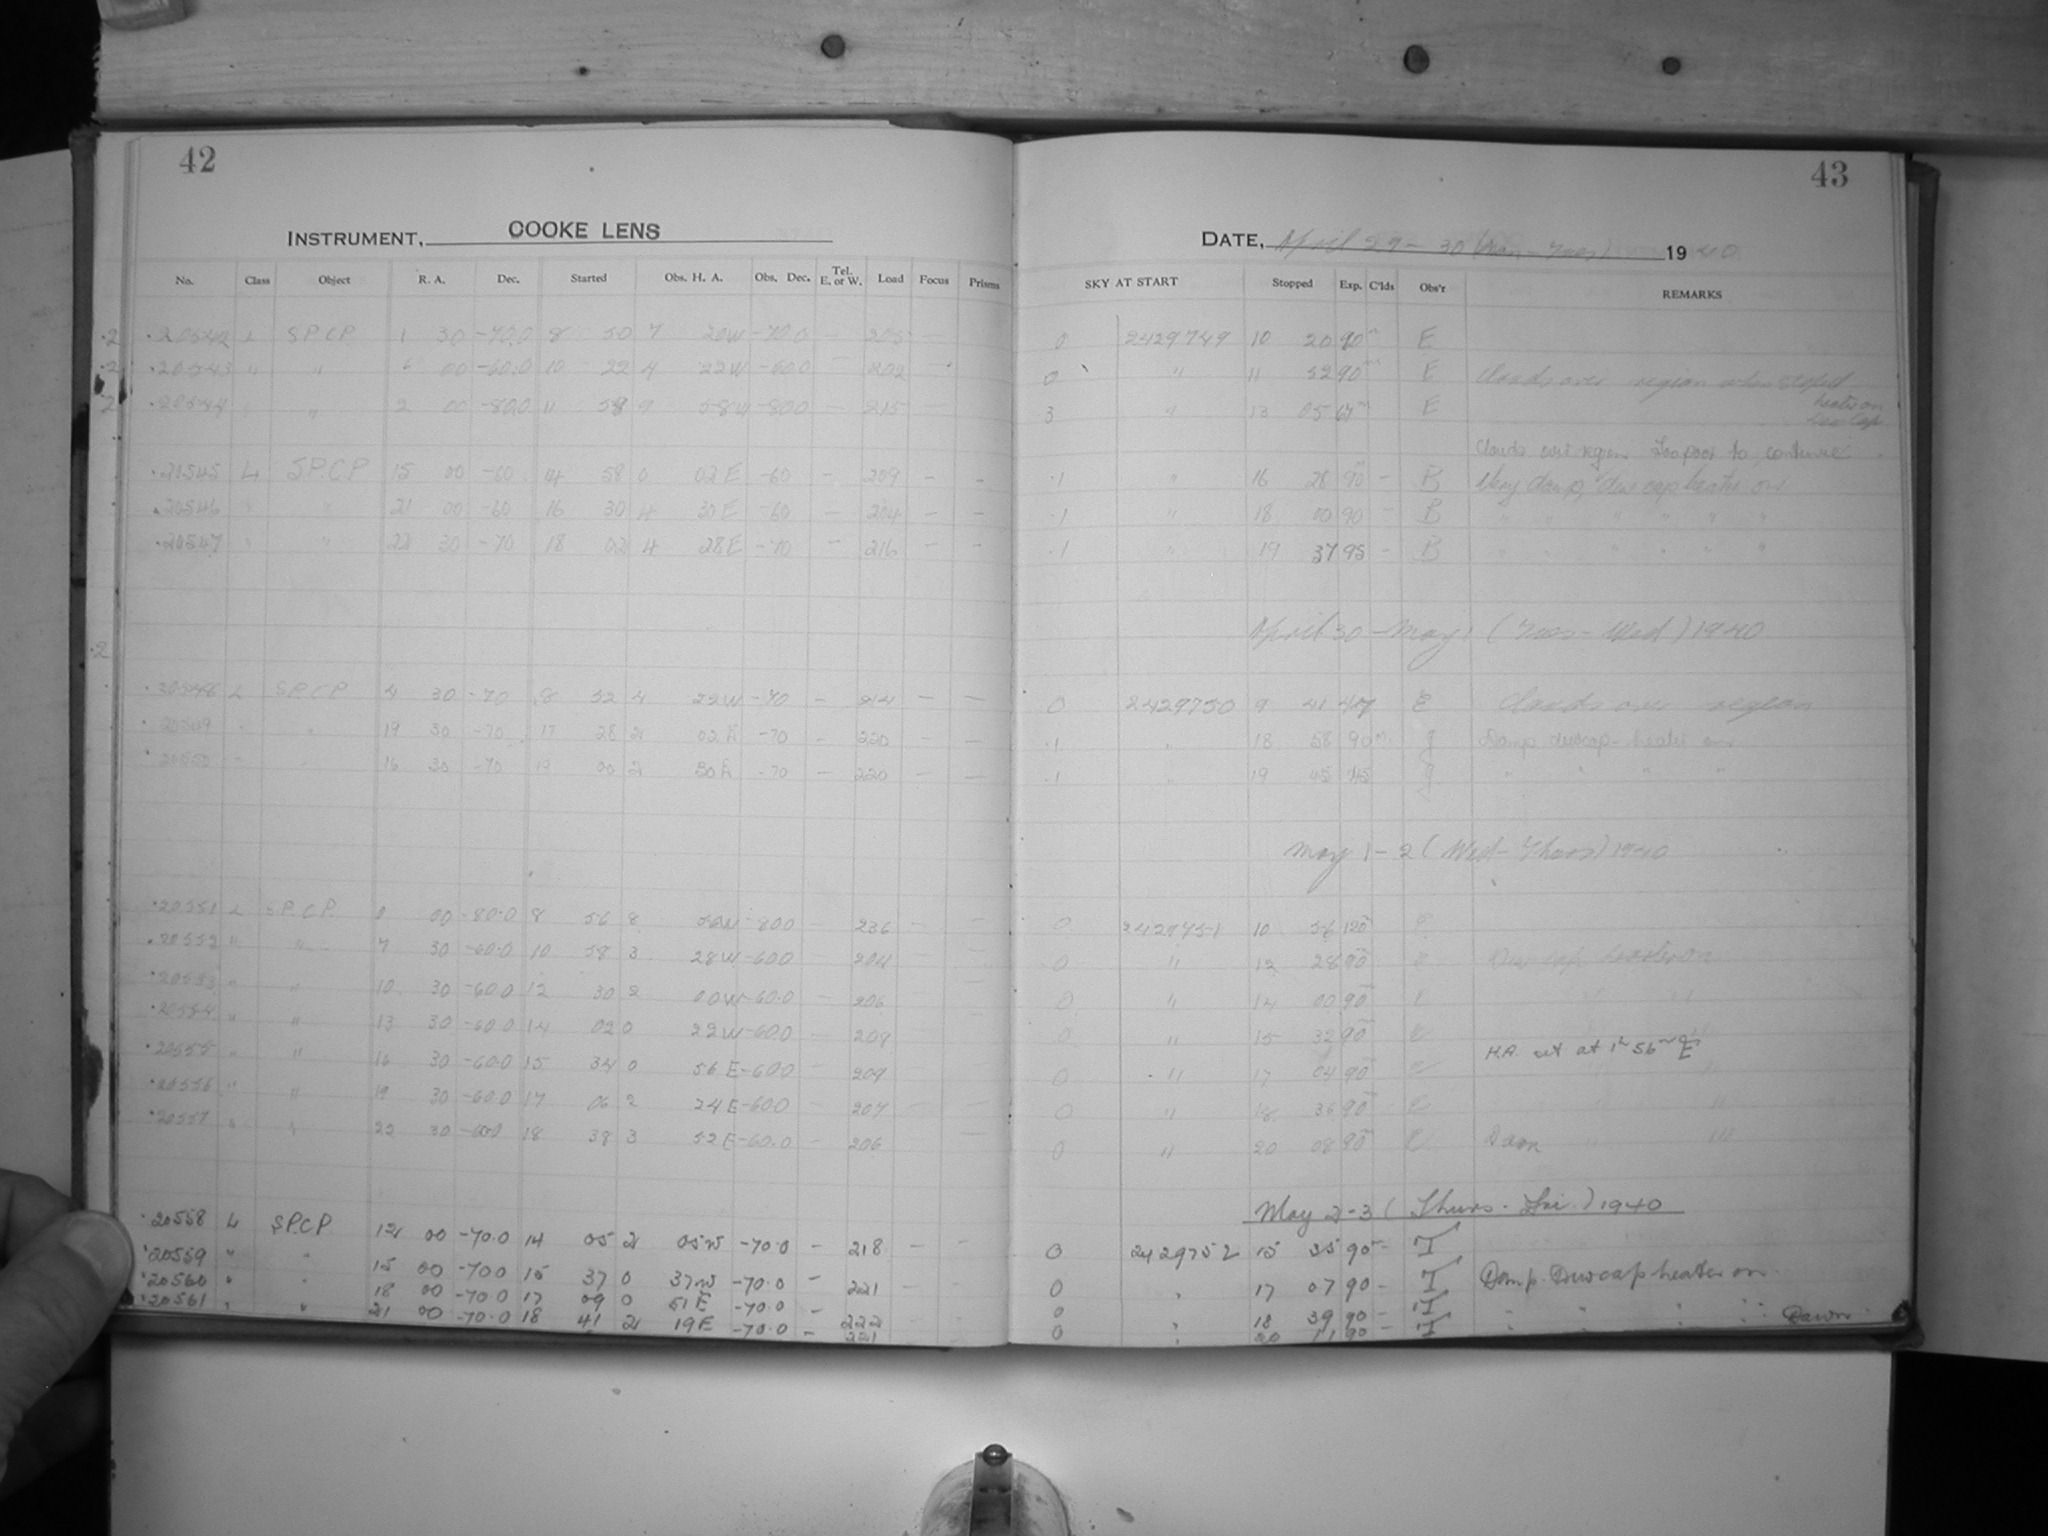 42
INSTRUMENT, COOKE LENS
No. Class Object R. A. Dec. Started Obs. H. A. Obs. Dec. Tel. E. or W. Load Focus Prisms
20542 L SPCP 1 30 -70.0 8 50 7 20W -70.0 — 205 —
20543 " " 6 00 -60.0 10 22 4 22W -60.0 202 —
20544 " 2 00 -80.0 11 58 9 58W -80.0 — 215 —
20545 L SPCP 15 00 -60 14 58 0 02E -60 — 209 — —
20546 " " 21 00 -60 16 30 4 30E -60 — 204 — —
20547 " " 22 30 -70 18 02 4 28E -70 — 216 — —
20548 L SPCP 4 30 -70 8 52 4 22W -70 — 214 — —
20549 " " 19 30 -70 17 28 2 02E -70 — 220 — —
20550 " " 16 30 -70 19 00 2 30E -70 — 220 — —
20551 L SPCP 00 -80.0 8 56 8 56W -80.0 236 — —
20552 " " 7 30 -60.0 10 58 3 28W -60.0 204 — —
20553 " " 10 30 -60.0 12 30 2 00W -60.0 — 206 — —
20554 " " 13 30 -60.0 14 02 0 22W -60.0 — 209 —
20555 " " 16 30 -60.0 15 34 0 56E -60.0 — 209 — —
20556 " " 19 30 -60.0 17 06 2 24E -60.0 — 207 — —
20557 " " 22 30 -60.0 18 38 3 52E -60.0 — 206 — —
20558 L SPCP 12 00 -70.0 14 05 2 05W -70.0 — 218 — —
20559 " " 15 00 -70.0 15 37 0 37W -70.0 — 221 — —
20560 " " 18 00 -70.0 17 09 0 51E -70.0 — 222
20561 " " 21 00 -70.0 18 41 2 19E -70.0 — 221
43
DATE, April 29 - 30 (Mon - Tues) 1940
SKY AT START Stopped Exp. C'lds Obs'r REMARKS
0 2429749 10 20 90m E
0 " 11 52 90m E Clouds over region when stopped
heater on
dew cap
3 " 13 05 67m E
Clouds over region Too poor to continue
.1 " 16 28 90m — B Very damp, dew cap heater on
.1 " 18 00 90 — B " " " " " "
.1 " 19 37 95 — B " " " " " "
April 30 - May 1 (Tues - Wed) 1940
0 2429750 9 41 49 E Clouds over region
.1 " 18 58 90m Damp dewcap heater on
.1 " 19 45 45 " " " "
May 1 - 2 (Wed - Thurs) 1940
0 2429751 10 56 120m E
0 " 12 28 90m E Dew cap heater on
0 " 14 00 90m E " "
0 " 15 32 90m E
H.A. set at 1h 56m E
0 " 17 04 90m E " "
0 " 18 36 90m E "
0 " 20 08 90m E Dawn " "
May 2-3 (Thurs. - Fri.) 1940
0 2429752 15 35 90m — T
0 " 17 07 90 — T Damp. Dewcap heater on
0 " 18 39 90 — T " " " "
0 " 20 11 90 — T " " " " Dawn